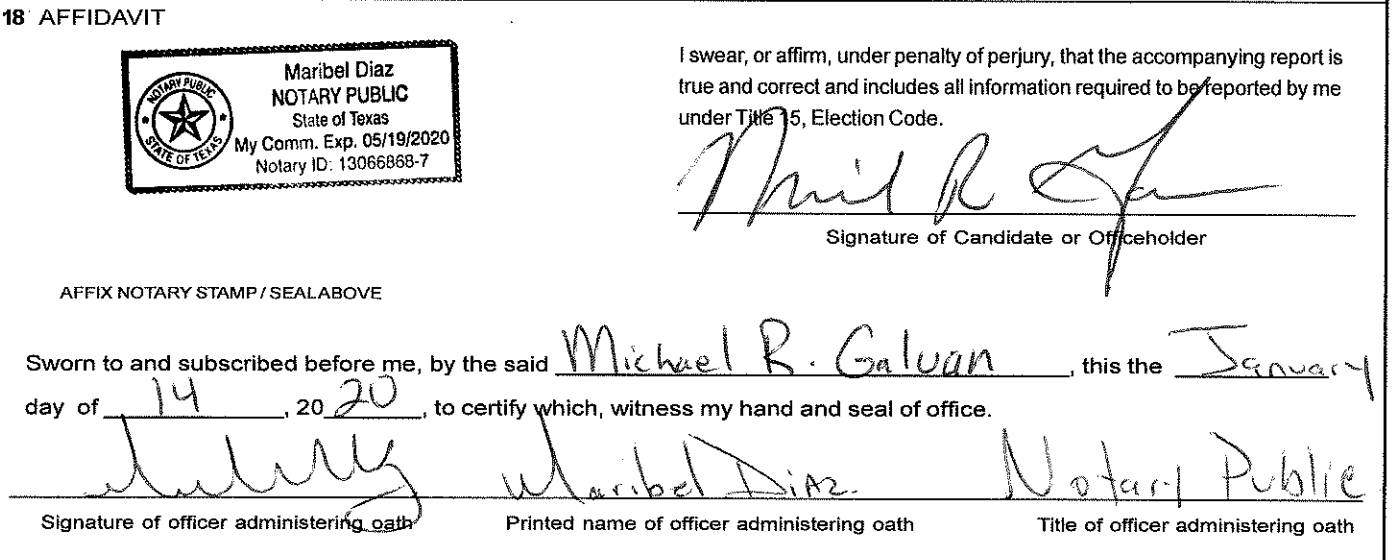 18 AFFIDAVIT
Maribel Diaz
NOTARY PUBLIC
State of Texas
My Comm. Exp. 05/19/2020
Notary ID: 13066868-7
NOTARY PUBLIC
STATE OF TEXAS
I swear, or affirm, under penalty of perjury, that the accompanying report is
true and correct and includes all information required to be reported by me
under Title 15, Election Code.
Signature of Candidate or Officeholder
AFFIX NOTARY STAMP / SEALABOVE
Sworn to and subscribed before me, by the said Michael R. Galvan, this the January
day of 14, 20 20, to certify which, witness my hand and seal of office.
Maribel Diaz. Notary Public
Signature of officer administering oath Printed name of officer administering oath Title of officer administering oath